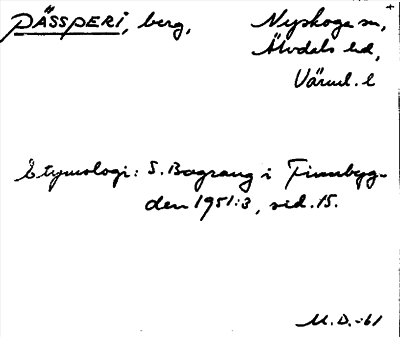 PÄSSPERI, berg, Nyskoga sn,
Älvdals hd,
Värml. l
Etymologi: S. Bograng i Finnbyg-
den 1951:3, sid. 15.
M.D.-61